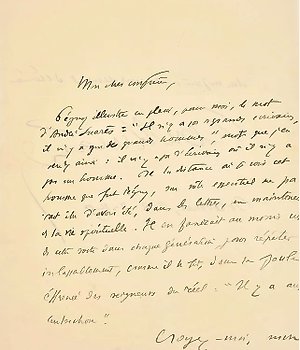 Mon cher confrère,
Péguy illustre en plein, pour moi, le mot
d'André Suarès = "Il n'y a pas grands écrivains,
il n'y a que des grands hommes", mots que j'en
: il n'y a pas d'écrivain où il n'y a
pas un homme. De la distance où je vois cet
homme que fut Péguy, son rôle essentiel me
d'avoir été, dans les lettres, un mainteneur
de la vie spirituelle. Il en faudrait au moins un
de cette sorte dans chaque génération pour répéter
inlassablement, comme il le fit, dans la foule
des seigneurs du réel = "Il y a
Croyez-moi, mon